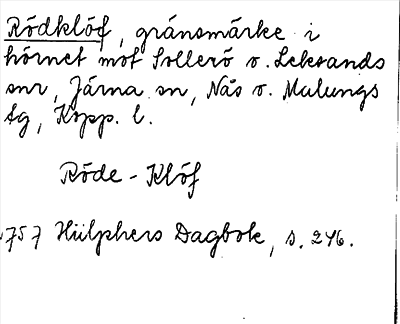 Rödklöf, gränsmärke i
hörnet mot Sollerö o. Leksands
snr, Järna sn, Nås o. Malungs
tg, Kopp. l.
Röde-Klöf
1757 Hülphers Dagbok, s. 246.